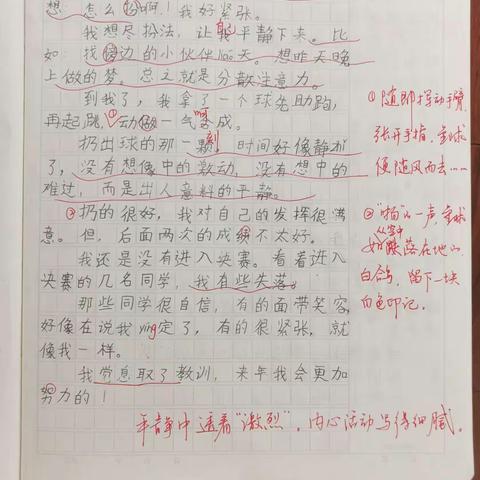 想，怎么扔啊！我好紧张。
我想尽办法，让自己平静下来。比
如找边的小伙伴聊天。想昨天晚
上做的梦。总之就是分散注意力。
到我了，我拿了一个球先助跑，
再起跳，动做一气呵成。
扔出球的那一刻，时间好像静止
了，没有想像中的激动，没有想中的
难过，而是出人意料的平静。
扔的很好，我对自己的发挥很满
意。但，后面两次的成绩不太好。
我还是没有进入决赛。看着进入
决赛的几名同学，我有些失落。
那些同学很自信，有的面带笑容，
好像在说我ying定了，有的很紧张，就
像我一样。
我吸取了教训，来年我会更加
努力的！
①随即挥动手臂，
张开手指，垒球
便随风而去……
②"啪"的一声，垒球
落在地上，
白鸽，留下一块
白色印记。
平静中透着"激烈"，内心活动写得细腻。